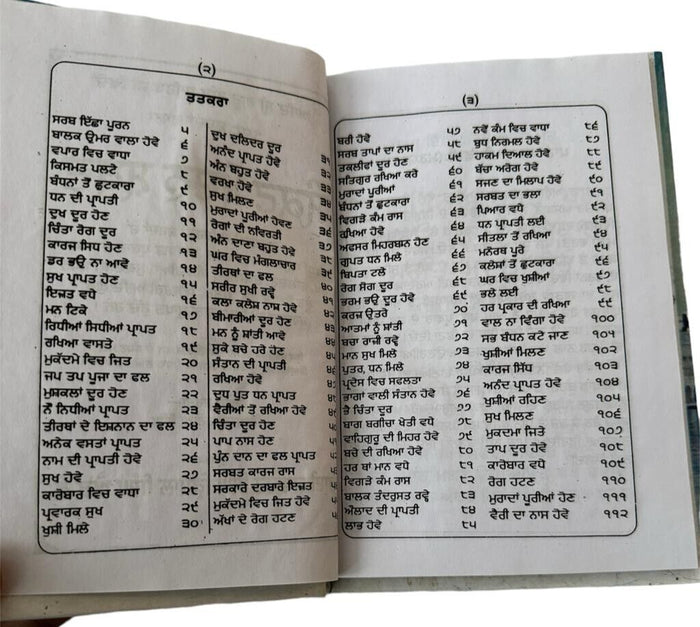 (੨)
ਤਤਕਰਾ
ਸਰਬ ਇੱਛਾ ਪੂਰਨ ੫
ਬਾਲਕ ਉਮਰ ਵਾਲਾ ਹੋਵੇ ੬
ਵਪਾਰ ਵਿਚ ਵਾਧਾ ੭
ਕਿਸਮਤ ਪਲਟੇ ੮
ਬੰਧਨਾਂ ਤੋਂ ਛੁਟਕਾਰਾ ੯
ਧਨ ਦੀ ਪ੍ਰਾਪਤੀ ੧੦
ਦੁਖ ਦੂਰ ਹੋਣ ੧੧
ਚਿੰਤਾ ਰੋਗ ਦੂਰ ੧੨
ਕਾਰਜ ਸਿਧ ਹੋਣ ੧੩
ਡਰ ਭਉ ਨਾ ਆਵੇ ੧੪
ਸੁਖ ਪ੍ਰਾਪਤ ਹੋਣ ੧੫
ਇਜ਼ਤ ਵਧੇ ੧੬
ਮਨ ਟਿਕੇ ੧੭
ਰਿਧੀਆਂ ਸਿਧੀਆਂ ਪ੍ਰਾਪਤ ੧੮
ਰਖਿਆ ਵਾਸਤੇ ੧੯
ਮੁਕੱਦਮੇ ਵਿਚ ਜਿਤ ੨੦
ਜਪ ਤਪ ਪੂਜਾ ਦਾ ਫਲ ੨੧
ਮੁਸ਼ਕਲਾਂ ਦੂਰ ਹੋਣ ੨੨
ਨੌਂ ਨਿਧੀਆਂ ਪ੍ਰਾਪਤ ੨੩
ਤੀਰਥਾਂ ਦੇ ਇਸ਼ਨਾਨ ਦਾ ਫਲ ੨੪
ਅਨੇਕ ਵਸਤਾਂ ਪ੍ਰਾਪਤ ੨੫
ਨਾਮ ਦੀ ਪ੍ਰਾਪਤੀ ਹੋਵੇ ੨੬
ਸੁਖ ਹੋਵੇ ੨੭
ਕਾਰੋਬਾਰ ਵਿਚ ਵਾਧਾ ੨੮
ਪ੍ਰਵਾਰਕ ਸੁਖ ੨੯
ਖੁਸ਼ੀ ਮਿਲੇ ੩੦
ਦੁਖ ਦਲਿਦਰ ਦੂਰ ੩੧
ਅਨੰਦ ਪ੍ਰਾਪਤ ਹੋਵੇ ੩੨
ਅੰਨ ਬਹੁਤ ਹੋਵੇ ੩੩
ਵਰਖਾ ਹੋਵੇ ੩੪
ਸੁਖ ਮਿਲਣ ੩੫
ਮੁਰਾਦਾਂ ਪੂਰੀਆਂ ਹੋਵਣ ੩੬
ਰੋਗਾਂ ਦੀ ਨਵਿਰਤੀ ੩੭
ਅੰਨ ਦਾਣਾ ਬਹੁਤ ਹੋਵੇ ੩੮
ਘਰ ਵਿਚ ਮੰਗਲਾਚਾਰ ੩੯
ਤੀਰਥਾਂ ਦਾ ਫਲ ੪੦
ਸਰੀਰ ਸੁਖੀ ਰਵ੍ਹੇ ੪੧
ਕਲਾ ਕਲੇਸ਼ ਨਾਸ਼ ਹੋਵੇ ੪੨
ਬੀਮਾਰੀਆਂ ਦੂਰ ਹੋਣ
ਮਨ ਨੂੰ ਸ਼ਾਂਤੀ
ਸੁਕੇ ਬਚੇ ਹਰੇ ਹੋਣ
ਸੰਤਾਨ ਦੀ ਪ੍ਰਾਪਤੀ
ਰਖਿਆ ਹੋਵੇ
ਦੁਧ ਪੁਤ ਧਨ ਪ੍ਰਾਪਤ
ਵੈਰੀਆਂ ਤੋਂ ਰਖਿਆ ਹੋਵੇ
ਚਿੰਤਾ ਦੂਰ ਹੋਣ
ਪਾਪ ਨਾਸ ਹੋਣ
ਪੁੰਨ ਦਾਨ ਦਾ ਫਲ ਪ੍ਰਾਪਤ
ਸਰਬਤ ਕਾਰਜ ਰਾਸ
ਸਰਕਾਰੇ ਦਰਬਾਰੇ ਇਜ਼ਤ
ਮੁਕੱਦਮੇ ਵਿਚ ਜਿਤ ਹੋਵੇ
ਅੱਖਾਂ ਦੇ ਰੋਗ ਹਟਣ
(੩)
ਬਰੀ ਹੋਵੇ ੫੭
ਸਰਬ ਤਾਪਾਂ ਦਾ ਨਾਸ ੫੮
ਤਕਲੀਵਾਂ ਦੂਰ ਹੋਣ ੫੯
ਸਤਿਗੁਰ ਰਖਿਆ ਕਰੇ ੬੦
ਮੁਰਾਦਾਂ ਪੂਰੀਆਂ ੬੧
ਬੰਧਨਾਂ ਤੋਂ ਛੁਟਕਾਰਾ ੬੨
ਵਿਗੜੇ ਕੰਮ ਰਾਸ ੬੩
ਰਖਿਆ ਹੋਵੇ ੬੪
ਅਫਸਰ ਮਿਹਰਬਾਨ ਹੋਣ ੬੫
ਗੁਪਤ ਧਨ ਮਿਲੇ ੬੬
ਬਿਪਤਾ ਟਲੇ ੬੭
ਰੋਗ ਸੋਗ ਦੂਰ ੬੮
ਭਰਮ ਭਉ ਦੂਰ ਹੋਵੇ ੬੯
ਕਰਜ਼ ਉਤਰੇ ੭੦
ਆਤਮਾਂ ਨੂੰ ਸ਼ਾਂਤੀ ੭੧
ਬਚਾ ਰਾਜ਼ੀ ਰਵ੍ਹੇ ੭੨
ਮਾਨ ਸੁਖ ਮਿਲੇ ੭੩
ਪੁਤਰ, ਧਨ ਮਿਲੇ ੭੪
ਪ੍ਰਦੇਸ ਵਿਚ ਸਫਲਤਾ ੭੫
ਭਾਗਾਂ ਵਾਲੀ ਸੰਤਾਨ ਹੋਵੇ ੭੬
ਭੈ ਚਿੰਤਾ ਦੂਰ ੭੭
ਬਾਗ ਬਗੀਚਾ ਖੇਤੀ ਵਧੇ ੭੮
ਵਾਹਿਗੁਰੂ ਦੀ ਮਿਹਰ ਹੋਵੇ ੭੯
ਬਚੇ ਦੀ ਰਖਿਆ ਹੋਵੇ ੮੦
ਹਰ ਥਾਂ ਮਾਨ ਵਧੇ ੮੧
ਵਿਗੜੇ ਕੰਮ ਰਾਸ ੮੨
ਬਾਲਕ ਤੰਦਰੁਸਤ ਰਵ੍ਹੇ ੮੩
ਔਲਾਦ ਦੀ ਪ੍ਰਾਪਤੀ ੮੪
ਲਾਭ ਹੋਵੇ ੮੫
ਨਵੇਂ ਕੰਮ ਵਿਚ ਵਾਧਾ ੮੬
ਬੁਧ ਨਿਰਮਲ ਹੋਵੇ ੮੭
ਹਾਕਮ ਦਿਆਲ ਹੋਵੇ ੮੮
ਬੱਚਾ ਅਰੋਗ ਹੋਵੇ ੮੯
ਸਜਣ ਦਾ ਮਿਲਾਪ ਹੋਵੇ ੯੦
ਸਰਬਤ ਦਾ ਭਲਾ ੯੧
ਪਿਆਰ ਵਧੇ ੯੨
ਧਨ ਪ੍ਰਾਪਤੀ ਲਈ ੯੩
ਸੀਤਲਾ ਤੋਂ ਰਖਿਆ ੯੪
ਮਨੋਰਥ ਪੂਰੇ ੯੫
ਕਲੇਸ਼ਾਂ ਤੋਂ ਛੁਟਕਾਰਾ ੯੬
ਘਰ ਵਿਚ ਖੁਸ਼ੀਆਂ ੯੭
ਭਲੇ ਲਈ ੯੮
ਹਰ ਪ੍ਰਕਾਰ ਦੀ ਰਖਿਆ ੯੯
ਵਾਲ ਨਾ ਵਿੰਗਾ ਹੋਵੇ ੧੦੦
ਸਭ ਬੰਧਨ ਕਟੇ ਜਾਣ ੧੦੧
ਖੁਸ਼ੀਆਂ ਮਿਲਣ ੧੦੨
ਕਾਰਜ ਸਿੱਧ ੧੦੩
ਅਨੰਦ ਪ੍ਰਾਪਤ ਹੋਵੇ ੧੦੪
ਖੁਸ਼ੀਆਂ ਰਹਿਣ ੧੦੫
ਸੁਖ ਮਿਲਣ ੧੦੬
ਮੁਕਦਮਾ ਜਿਤੇ ੧੦੭
ਤਾਪ ਦੂਰ ਹੋਵੇ ੧੦੮
ਕਾਰੋਬਾਰ ਵਧੇ ੧੦੯
ਰੋਗ ਹਟਣ ੧੧੦
ਮੁਰਾਦਾਂ ਪੂਰੀਆਂ ਹੋਣ ੧੧੧
ਵੈਰੀ ਦਾ ਨਾਸ ਹੋਵੇ ੧੧੨